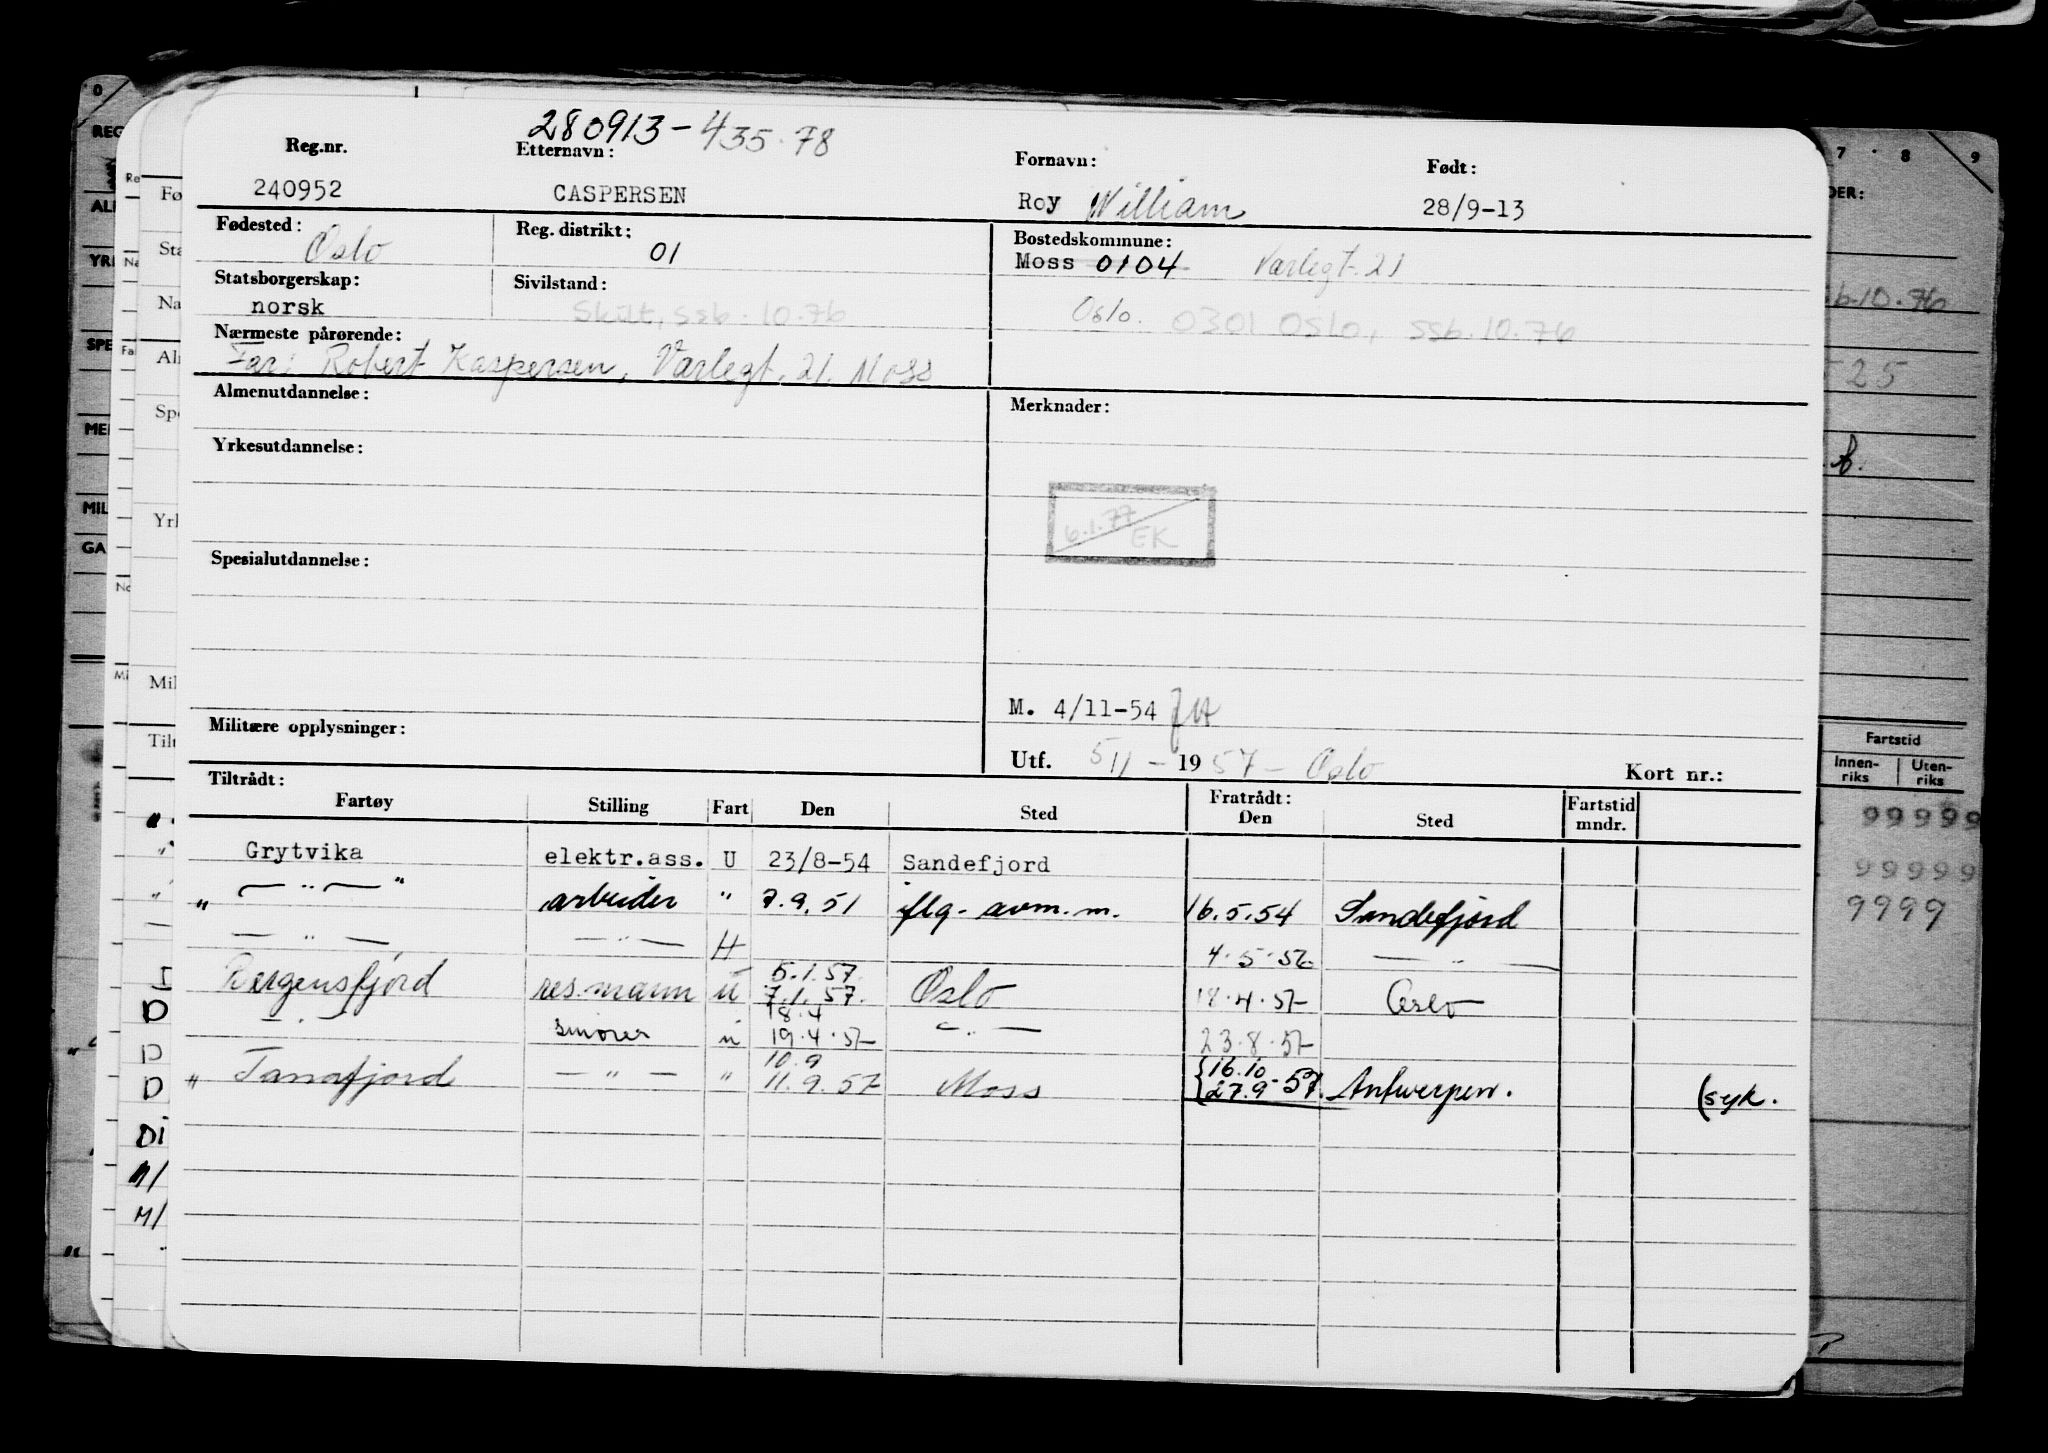 280913-435.78
Reg.nr. Etternavn: Fornavn: Født:
240952 CASPERSEN Roy William 28/9-13
Fødested: Reg. distrikt: Bostedskommune:
Oslo 01 Moss 0104 Varlegt. 21
Statsborgerskap: Sivilstand:
norsk Skilt, ssb. 10.76 Oslo. 0301 Oslo, ssb. 10.76
Nærmeste pårørende:
Far: Robert Kaspersen, Varlegt. 21. Moss
Almenutdannelse: Merknader:
Yrkesutdannelse:
6.1.77 EK
Spesialutdannelse:
M. 4/11-54
Militære opplysninger:
Utf. 5/11 - 1957 - Oslo Kort nr.:
Tiltrådt: Fratrådt:
Fartøy Stilling Fart Den Sted Den Sted Fartstid mndr.
Grytvika elektr.ass. U 23/8-54 Sandefjord
" — " — " arbeider " 7.9.51 iflg. avm.m. 16.5.54 Sandefjord
— " — — " — H 4.5.56 — " —
Bergensfjord res.mann U 5.1.57. 7.1.57. Oslo 18.4.57 Oslo
— " — smører u 18.4 19.4.57 — " — 23.8.57
" Tanafjord — " — " 10.9 11.9.57 Moss {16.10 27.9-57. Antwerpen. (syk.
REG
ALM
YRK
SPE
MIL
GA
Fø
Sta
Na
Alm
Spe
Yrk
Mil
Tilt
0 1 7 8 9
DER:
ssb.10.76
25
Fartstid
Innen-riks Uten-riks
99999
99999
9999
I
D
D
D
DI
M/
M/